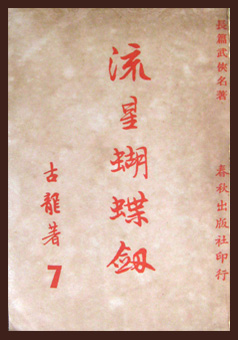 長篇武俠名著
春秋出版社印行
流星蝴蝶劔
古龍著
7